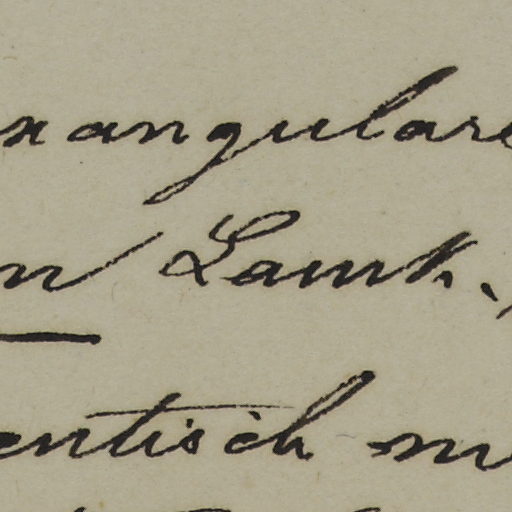 xangulare
n Lamk.,
entisch m